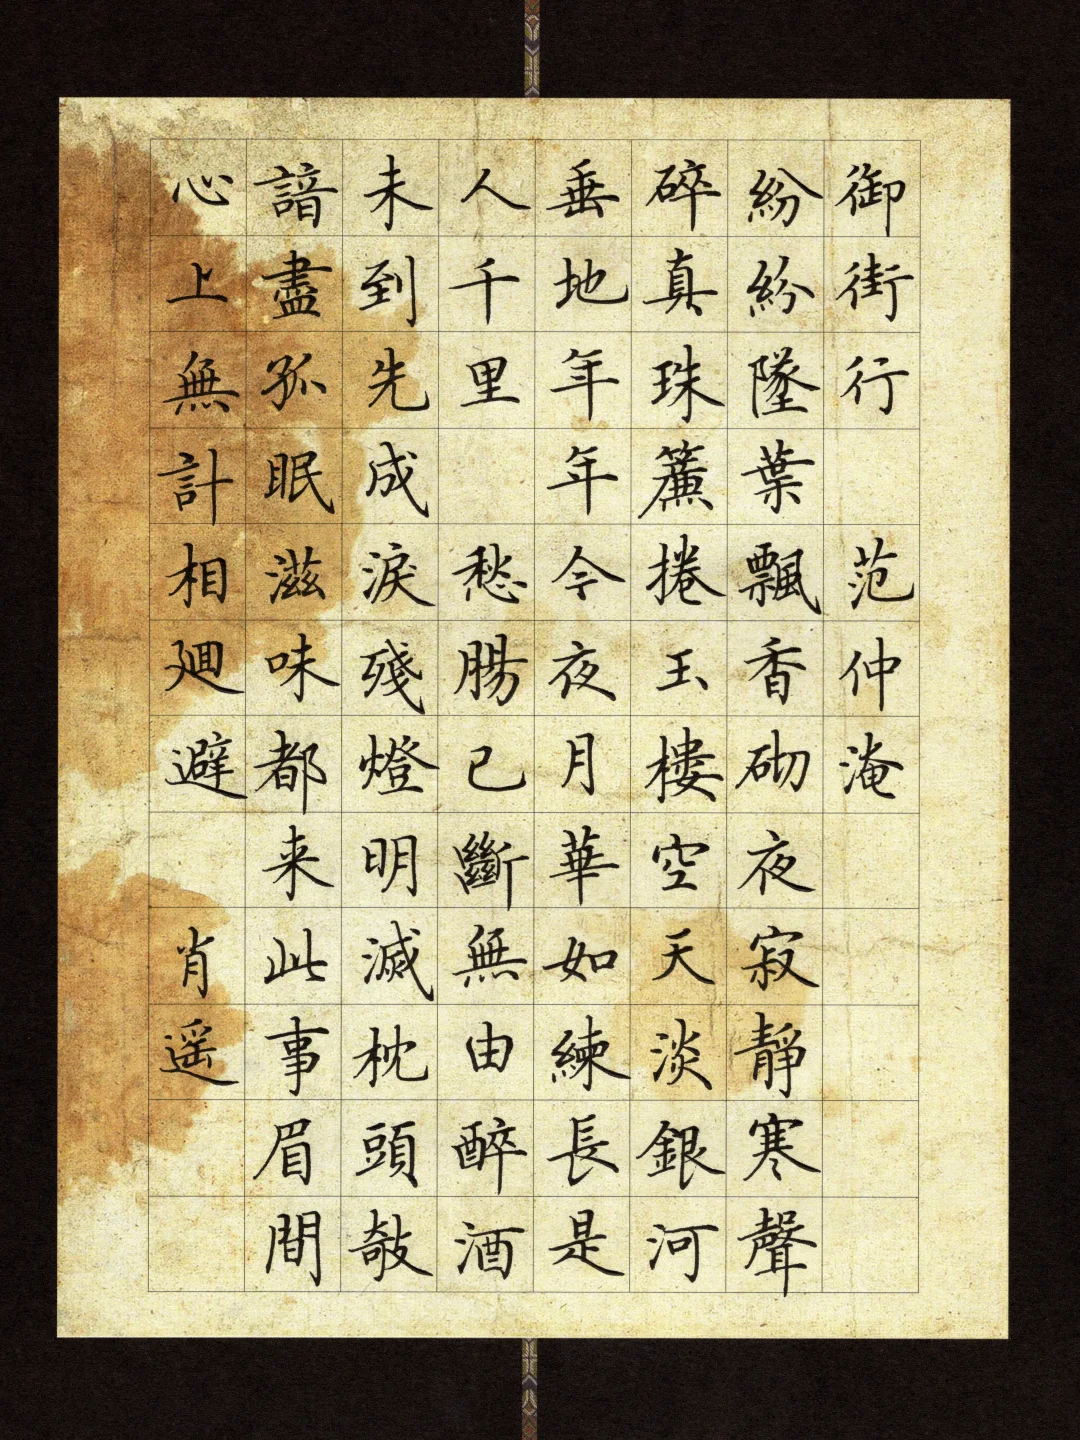 御街行 范仲淹
紛紛墜葉飄香砌夜寂靜寒聲
碎真珠簾捲玉樓空天淡銀河
垂地年年今夜月華如練長是
人千里 愁腸已斷無由醉酒
未到先成淚殘燈明滅枕頭敧
諳盡孤眠滋味都来此事眉間
心上無計相廻避 肖遥